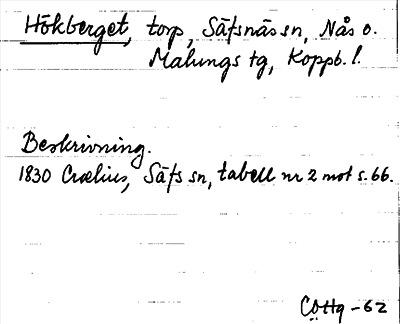 Hökberget, torp, Säfsnäs sn, Nås o.
Malungs tg, Koppb. l.
Beskrivning.
1830 Crælius, Säfs sn, tabell nr 2 mot s. 66.
CÖHg -62